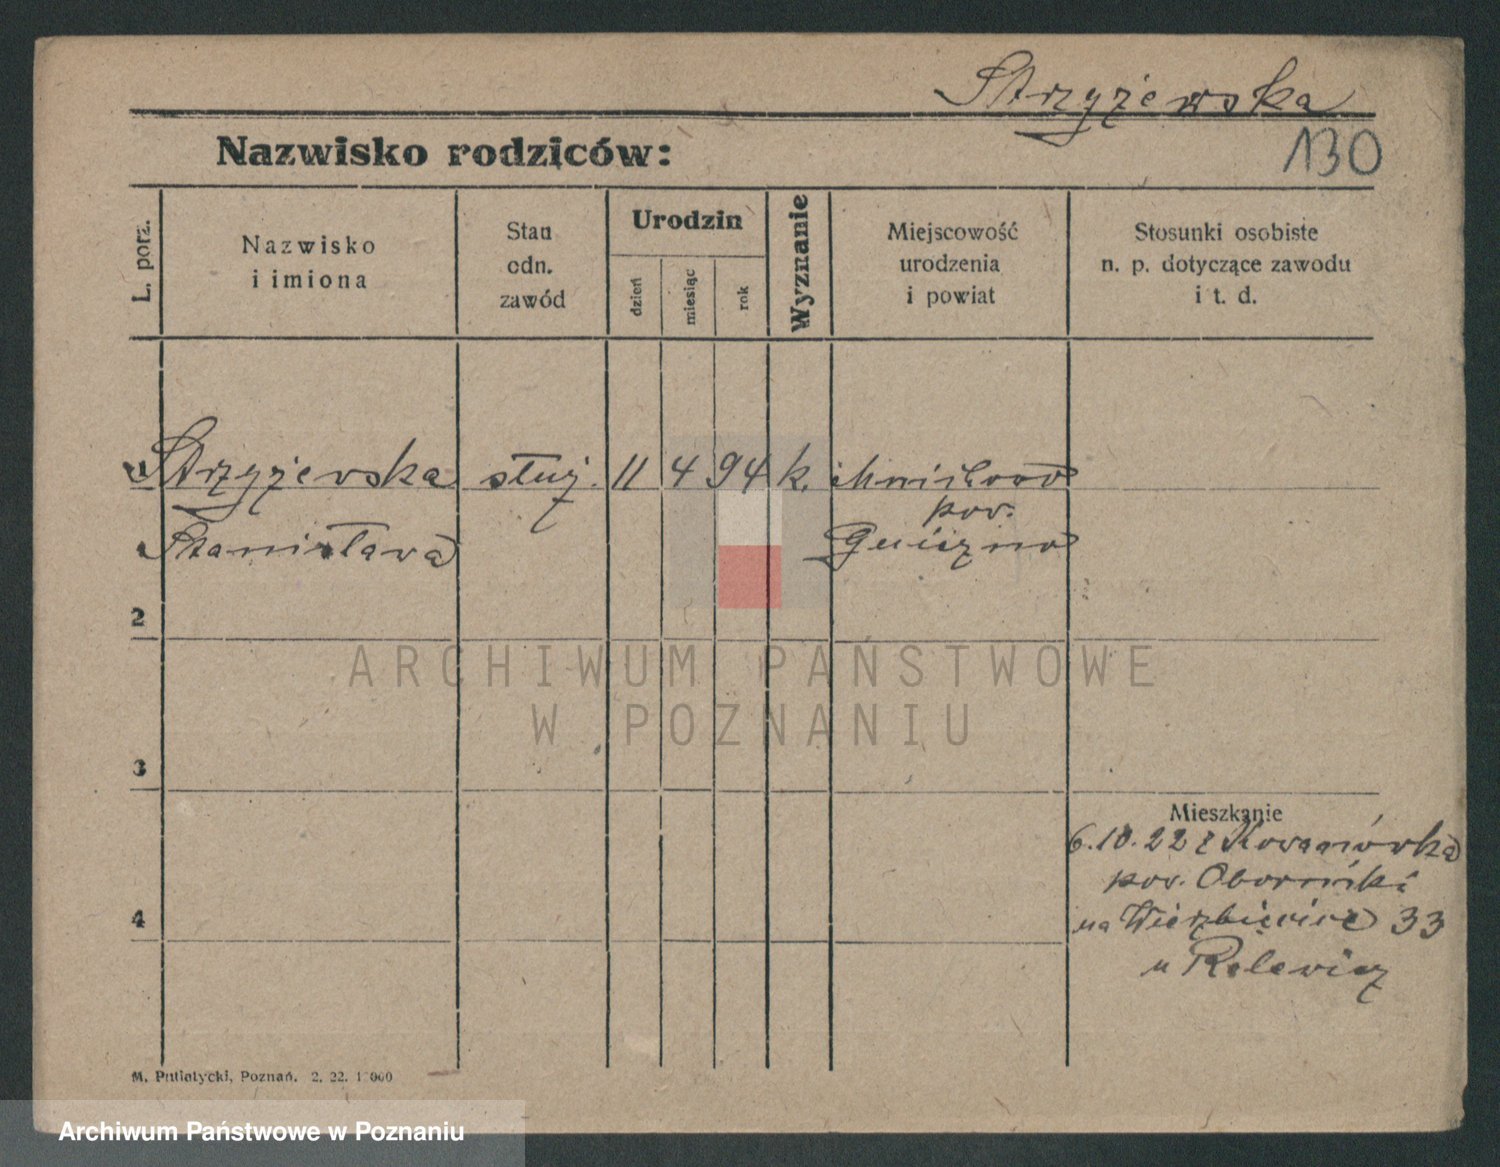 Strzyżewska
130
Nazwisko rodziców:
L. porz.
Nazwisko
i imiona
Stan
odn.
zawód
Urodzin
dzień
miesiąc
rok
Wyznanie
Miejscowość
urodzenia
i powiat
Stosunki osobiste
n. p. dotyczące zawodu
i t. d.
Strzyżewska służ. 11 4 94 k.
pow.
Stanisława Gniezno
2
ARCHIWUM PAŃSTWOWE
W POZNANIU
3
Mieszkanie
6.10.22 z Kowanówka
pow. Oborniki
4
na Wierzbięcice 33
u Relewicz
M. Putiatycki, Poznań. 2. 22. 1 000
Archiwum Państwowe w Poznaniu